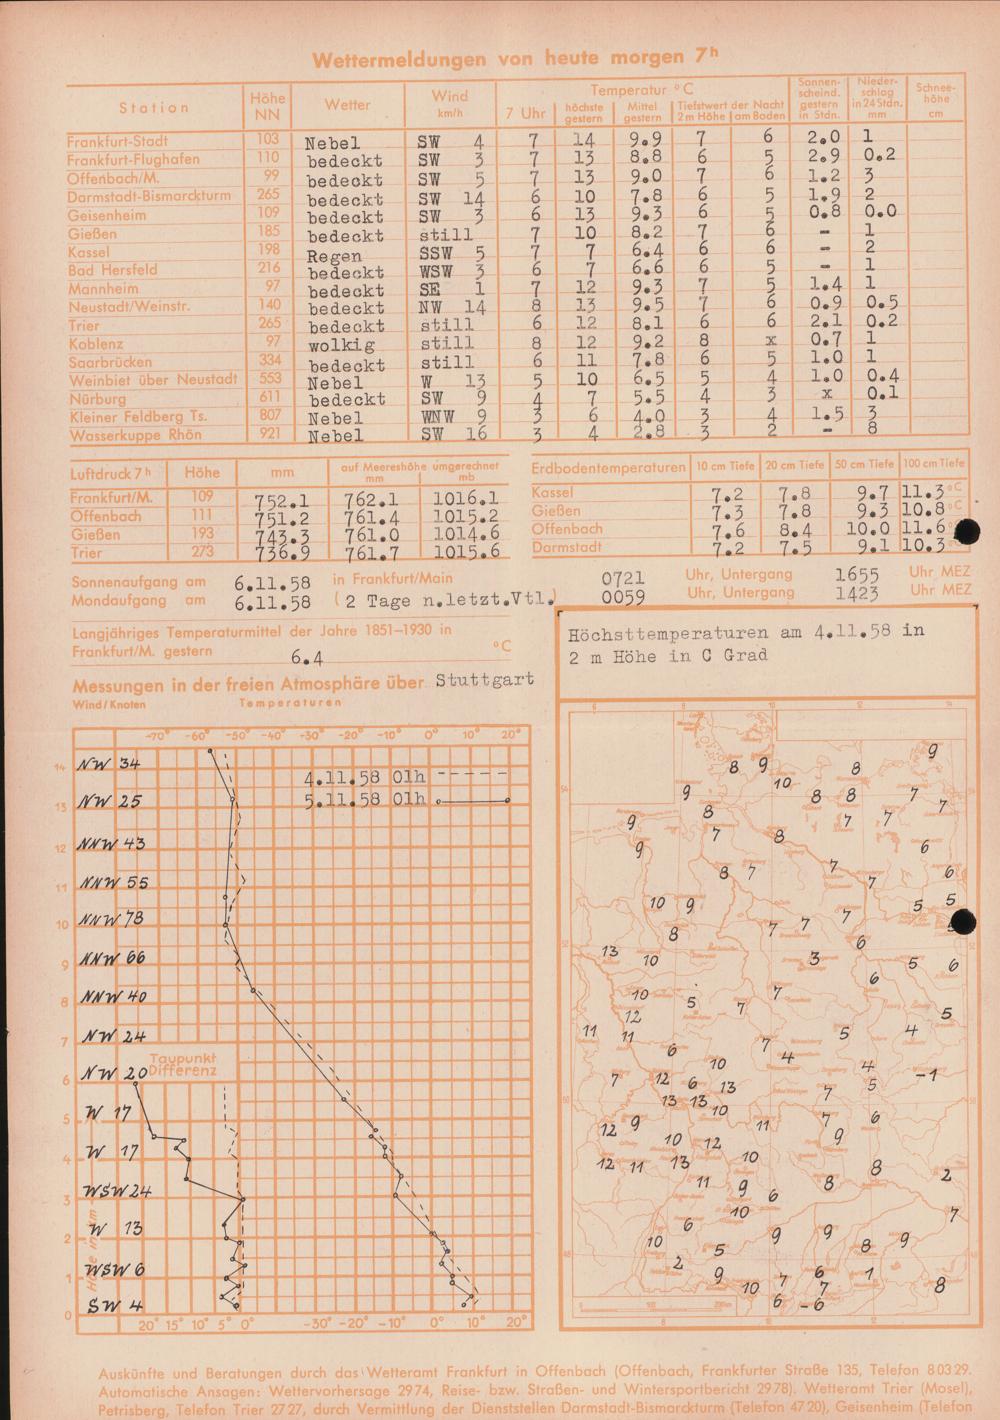 Wettermeldungen von heute morgen 7h
Station Höhe NN Wetter Wind km/h Temperatur °C 7 Uhr höchste gestern Mittel gestern Tiefstwert der Nacht 2 m Höhe am Boden Sonnenscheind. gestern in Stdn. Niederschlag in 24 Stdn. mm Schneehöhe cm
Frankfurt-Stadt 103 Nebel SW 4 7 14 9.9 7 6 2.0 1
Frankfurt-Flughafen 110 bedeckt SW 3 7 13 8.8 6 5 2.9 0.2
Offenbach/M. 99 bedeckt SW 5 7 13 9.0 7 6 1.2 3
Darmstadt-Bismarckturm 265 bedeckt SW 14 6 10 7.8 6 5 1.9 2
Geisenheim 109 bedeckt SW 3 6 13 9.3 6 5 0.8 0.0
Gießen 185 bedeckt still 7 10 8.2 7 6 - 1
Kassel 198 Regen SSW 5 7 7 6.4 6 6 - 2
Bad Hersfeld 216 bedeckt WSW 3 6 7 6.6 6 5 - 1
Mannheim 97 bedeckt SE 1 7 12 9.3 7 5 1.4 1
Neustadt/Weinstr. 140 bedeckt NW 14 8 13 9.5 7 6 0.9 0.5
Trier 265 bedeckt still 6 12 8.1 6 6 2.1 0.2
Koblenz 97 wolkig still 8 12 9.2 8 x 0.7 1
Saarbrücken 334 bedeckt still 6 11 7.8 6 5 1.0 1
Weinbiet über Neustadt 553 Nebel W 13 5 10 6.5 5 4 1.0 0.4
Nürburg 611 bedeckt SW 9 4 7 5.5 4 3 x 0.1
Kleiner Feldberg Ts. 807 Nebel WNW 9 3 6 4.0 3 4 1.5 3
Wasserkuppe Rhön 921 Nebel SW 16 3 4 2.8 3 2 - 8
Luftdruck 7h Höhe mm auf Meereshöhe umgerechnet mm mb
Frankfurt/M. 109 752.1 762.1 1016.1
Offenbach 111 751.2 761.4 1015.2
Gießen 193 743.3 761.0 1014.6
Trier 273 736.9 761.7 1015.6
Erdbodentemperaturen 10 cm Tiefe 20 cm Tiefe 50 cm Tiefe 100 cm Tiefe
Kassel 7.2 7.8 9.7 11.3 °C
Gießen 7.3 7.8 9.3 10.8 °C
Offenbach 7.6 8.4 10.0 11.6
Darmstadt 7.2 7.5 9.1 10.3
Sonnenaufgang am 6.11.58 in Frankfurt/Main 0721 Uhr, Untergang 1655 Uhr MEZ
Mondaufgang am 6.11.58 (2 Tage n.letzt.Vtl.) 0059 Uhr, Untergang 1423 Uhr MEZ
Langjähriges Temperaturmittel der Jahre 1851–1930 in
Frankfurt/M. gestern 6.4 °C
Höchsttemperaturen am 4.11.58 in
2 m Höhe in C Grad
Messungen in der freien Atmosphäre über Stuttgart
Wind/Knoten Temperaturen
-70° -60° -50° -40° -30° -20° -10° 0° 10° 20°
14 NW 34
4.11.58 01h - - - - -
13 NW 25 5.11.58 01h
12 NNW 43
11 NNW 55
10 NNW 78
9 NNW 66
8 NNW 40
7 NW 24
Taupunkt
Differenz
6 NW 20
5 W 17
4 W 17
3 WSW 24
2 W 13
1 WSW 6
0 SW 4
Höhe in km
20° 15° 10° 5° 0° -30° -20° -10° 0° 10° 20°
6 8 10 12 14
9
8 9 8
10
9 8 8 7 7
9 8 7 7
7 8
9 6
8 7 7 7 6
10 9 5 5
7 7 7
8 6
13 10 3 5 6
6
10 5 7 7
12 5
11 11 5 4
6 7 4
10 4
7 12 6 13 5 -1
7
13 13 10
12 9 11 7 6
9
10 12
12 11 13 10 8
11 9 6 8 2
10 7
6 9 9
10 5 8 9
2 9 6 1
10 7 7 8
6 -6
Auskünfte und Beratungen durch das Wetteramt Frankfurt in Offenbach (Offenbach, Frankfurter Straße 135, Telefon 8 03 29.
Automatische Ansagen: Wettervorhersage 29 74, Reise- bzw. Straßen- und Wintersportbericht 29 78). Wetteramt Trier (Mosel),
Petrisberg, Telefon Trier 27 27, durch Vermittlung der Dienststellen Darmstadt-Bismarckturm (Telefon 47 20), Geisenheim (Telefon